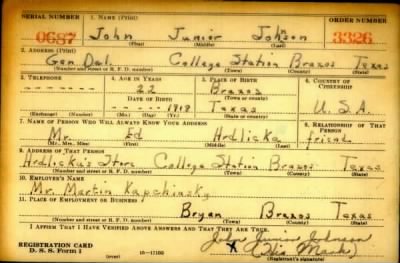 SERIAL NUMBER 1. NAME (Print) ORDER NUMBER
0687 John Junior Johnson 3326
(First) (Middle) (Last)
2. ADDRESS (Print)
Gen Del. College Station Brazos Texas
(Number and street or R. F. D. number) (Town) (County) (State)
3. TELEPHONE 4. AGE IN YEARS 5. PLACE OF BIRTH 6. COUNTRY OF CITIZENSHIP
22 Brazos
DATE OF BIRTH (Town or county)
1918 Texas U.S.A.
(Exchange) (Number) (Mo.) (Day) (Yr.) (State or country)
7. NAME OF PERSON WHO WILL ALWAYS KNOW YOUR ADDRESS 8. RELATIONSHIP OF THAT PERSON
Mr. Ed Hrdlicka friend
(Mr., Mrs., Miss) (First) (Middle) (Last)
9. ADDRESS OF THAT PERSON
Hrdlicka's Store College Station Brazos Texas
(Number and street or R. F. D. number) (Town) (County) (State)
10. EMPLOYER'S NAME
Mr. Martin Kapchinsky
11. PLACE OF EMPLOYMENT OR BUSINESS
Bryan Brazos Texas
(Number and street or R. F. D. number) (Town) (County) (State)
I AFFIRM THAT I HAVE VERIFIED ABOVE ANSWERS AND THAT THEY ARE TRUE.
John Junior Johnson
REGISTRATION CARD X (His Mark)
D. S. S. Form 1 (over) 16—17105 (Registrant's signature)